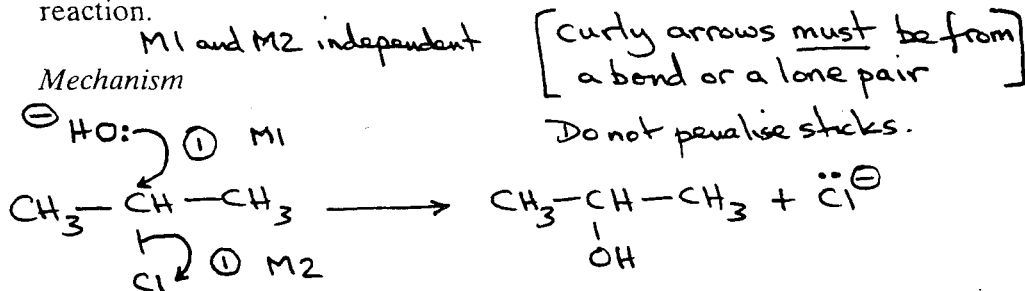 reaction.
M1 and M2 independent
[curly arrows must be from
a bond or a lone pair]
Mechanism
Do not penalise sticks.
⊖ HO: ① M1
CH₃—CH—CH₃ ⟶ CH₃—CH—CH₃ + C̈l⊖
Cl ① M2
OH